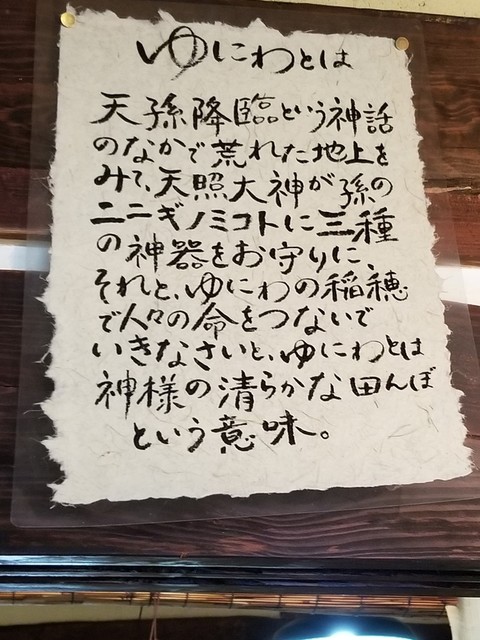 ゆにわとは
天孫降臨という神話
のなかで荒れた地上を
みて、天照大神が孫の
ニニギノミコトに三種
の神器をお守りに、
それと、ゆにわの稲穂
で人々の命をつないで
いきなさいと、ゆにわとは
神様の清らかな田んぼ
という意味。